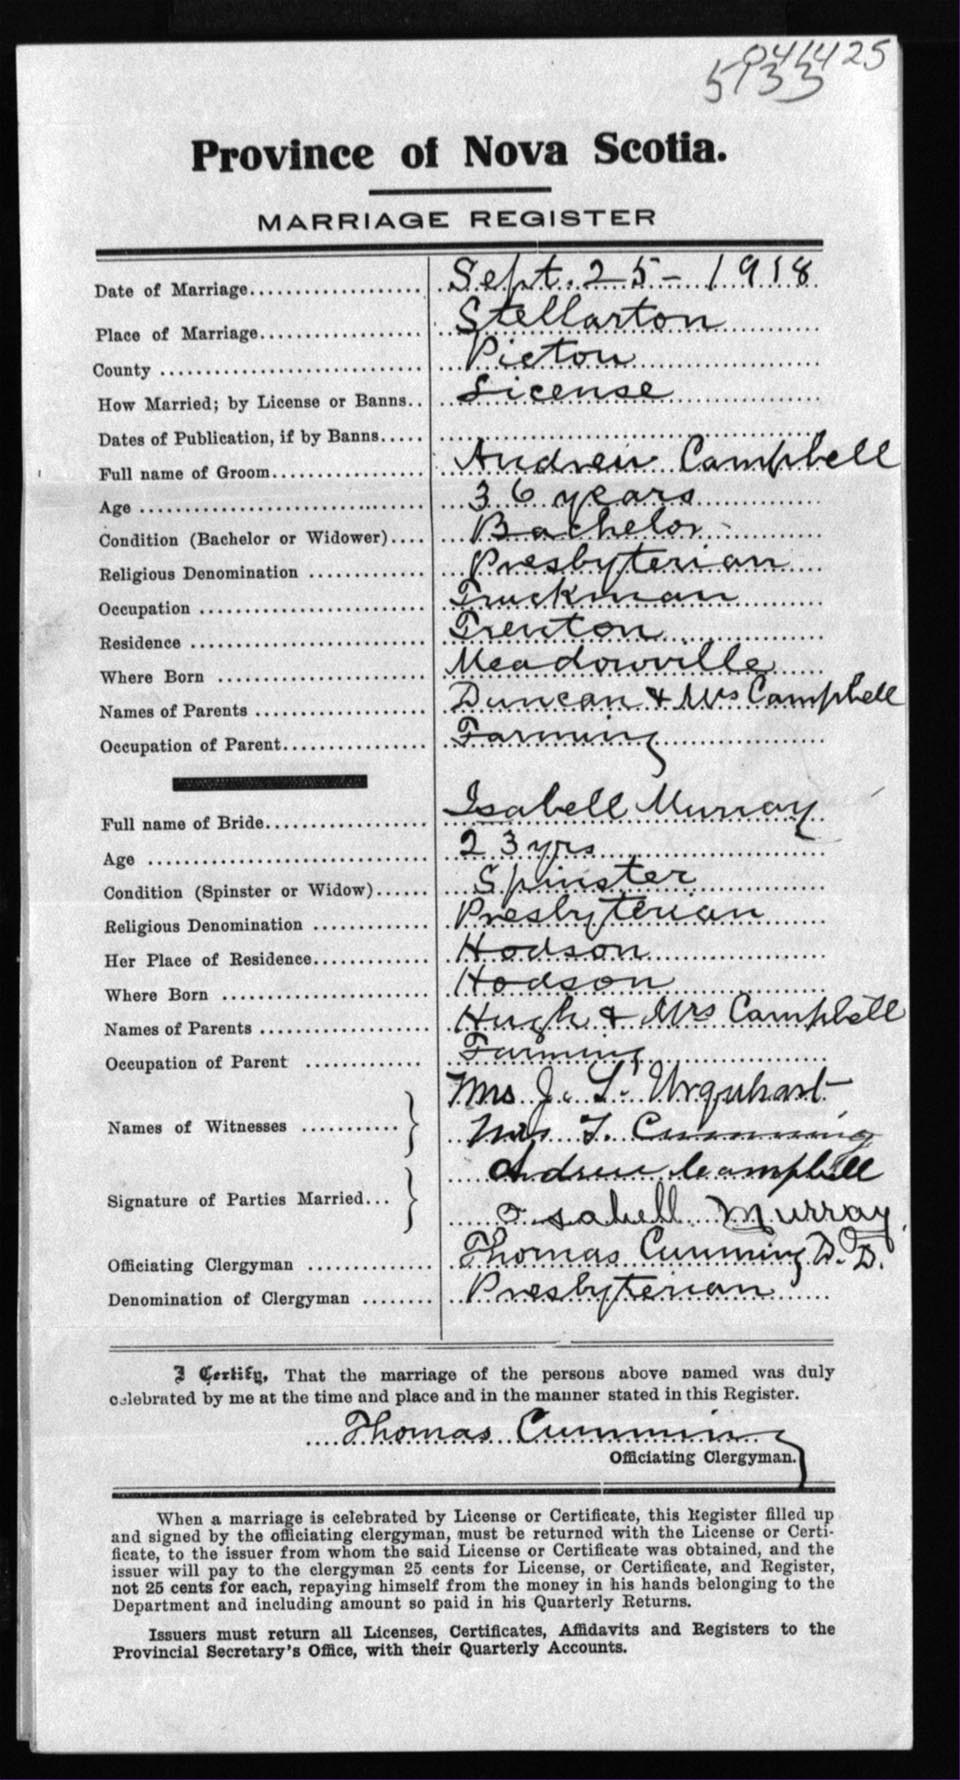 041425
5133
Province of Nova Scotia.
MARRIAGE REGISTER
Date of Marriage Sept. 25 - 1918
Place of Marriage Stellarton
County Pictou
How Married; by License or Banns License
Dates of Publication, if by Banns
Full name of Groom Andrew Campbell
Age 36 years
Condition (Bachelor or Widower) Bachelor
Religious Denomination Presbyterian
Occupation Truckman
Residence Trenton
Where Born Meadowville
Names of Parents Duncan & Mrs Campbell
Occupation of Parent Farming
Full name of Bride Isabell Murray
Age 23 yrs
Condition (Spinster or Widow) Spinster
Religious Denomination Presbyterian
Her Place of Residence Hodson
Where Born Hodson
Names of Parents Hugh & Mrs Campbell
Occupation of Parent Farming
Names of Witnesses } Mrs J. L. Urquhart
Mrs T. Cumming
Signature of Parties Married } Andrew Campbell
Isabell Murray
Officiating Clergyman Thomas Cumming D.D.
Denomination of Clergyman Presbyterian
I Certify, That the marriage of the persons above named was duly
celebrated by me at the time and place and in the manner stated in this Register.
Thomas Cumming
Officiating Clergyman.
When a marriage is celebrated by License or Certificate, this Register filled up
and signed by the officiating clergyman, must be returned with the License or Certi-
ficate, to the issuer from whom the said License or Certificate was obtained, and the
issuer will pay to the clergyman 25 cents for License, or Certificate, and Register,
not 25 cents for each, repaying himself from the money in his hands belonging to the
Department and including amount so paid in his Quarterly Returns.
Issuers must return all Licenses, Certificates, Affidavits and Registers to the
Provincial Secretary's Office, with their Quarterly Accounts.